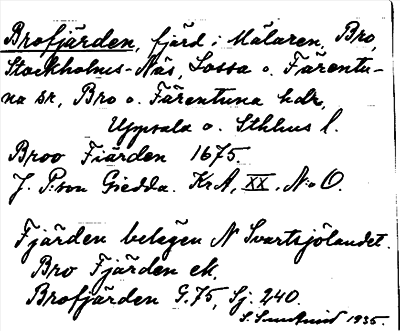 Brofjärden, fjärd i Mälaren, Bro,
Stockholms-Näs, Sossa o. Färentu-
na sr, Bro o. Färentuna hdr,
Uppsala o. Sthlms l.
Broo Fiärden 1675.
J. P:son Giedda. KrA, XX, N:o O.
Fjärden belägen N Svartsjölandet.
Bro Fjärden ek.
Brofjärden G. 75, Sj. 240.
S. 1935.